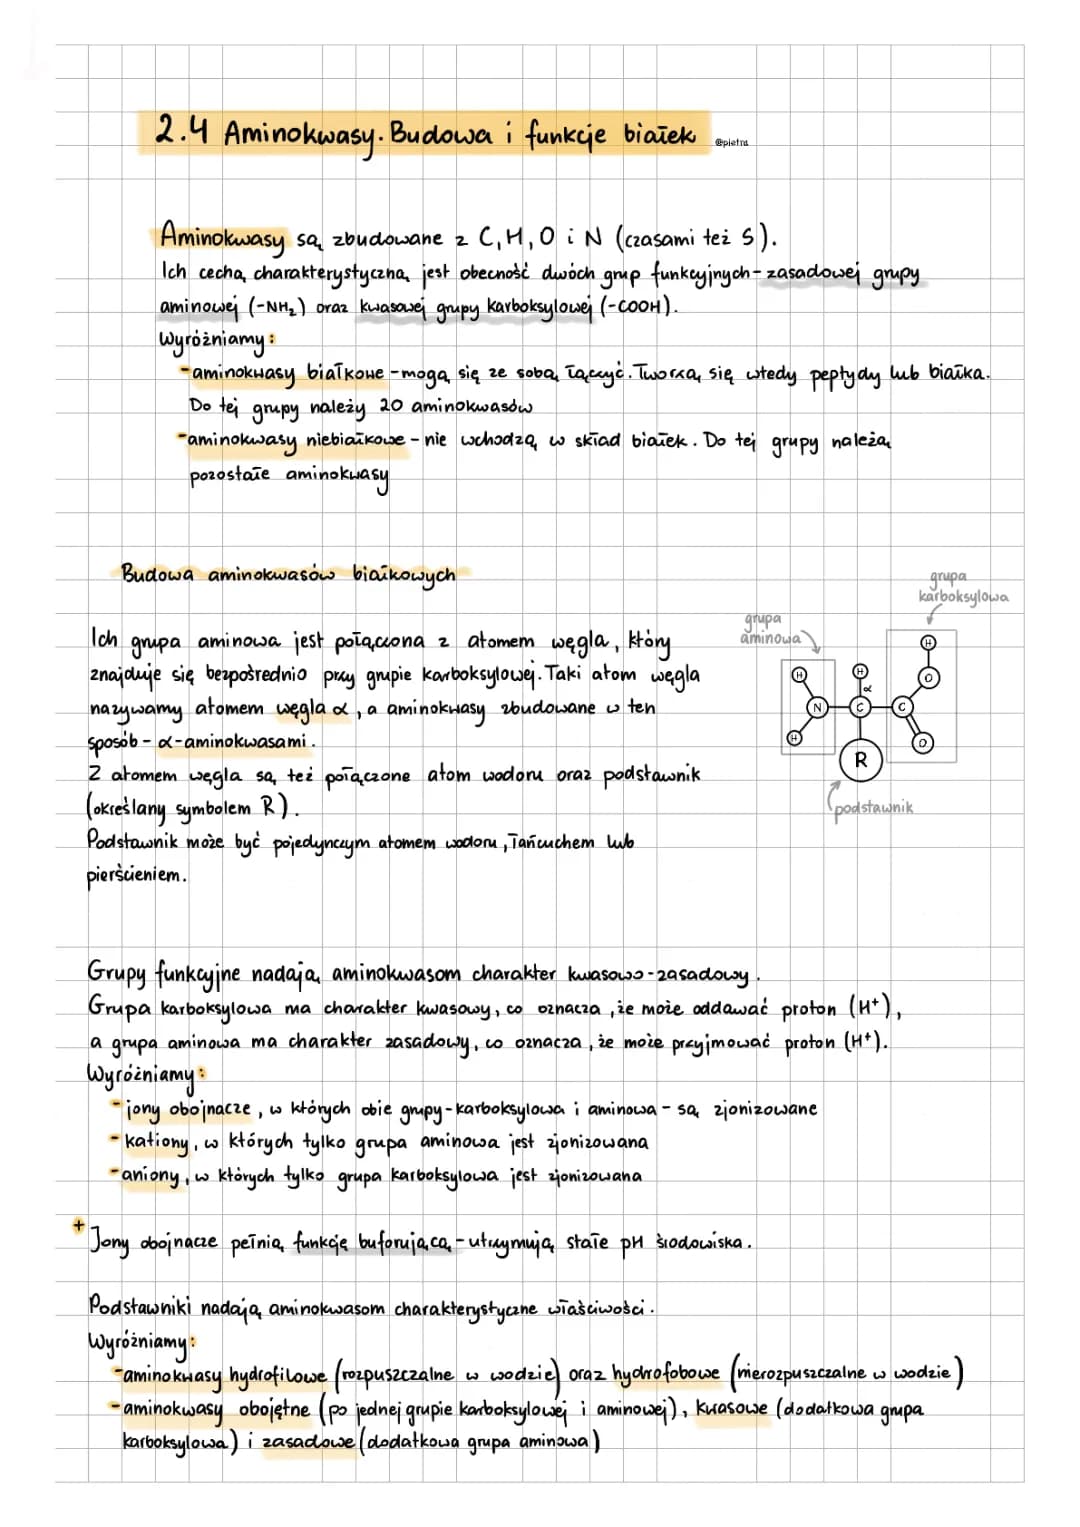 2.4 Aminokwasy. Budowa i funkcje białek @pietra
Aminokwasy są zbudowane z C, H, O i N (czasami też S).
Ich cechą charakterystyczną jest obecność dwóch grup funkcyjnych - zasadowej grupy
aminowej (-NH₂) oraz kwasowej grupy karboksylowej (-COOH).
Wyróżniamy:
-aminokwasy białkowe - mogą się ze sobą łączyć. Tworzą się wtedy peptydy lub białka.
Do tej grupy należy 20 aminokwasów
-aminokwasy niebiałkowe - nie wchodzą w skład białek. Do tej grupy należą
pozostałe aminokwasy
Budowa aminokwasów białkowych
Ich grupa aminowa jest połączona z atomem węgla, który
znajduje się bezpośrednio przy grupie karboksylowej. Taki atom węgla
nazywamy atomem węgla α, a aminokwasy zbudowane w ten
sposób - α-aminokwasami.
Z atomem węgla są też połączone atom wodoru oraz podstawnik
(określany symbolem R).
Podstawnik może być pojedynczym atomem wodoru, łańcuchem lub
pierścieniem.
grupa
karboksylowa
grupa
aminowa
H
H
H
α
O
N
C
C
H
O
R
podstawnik
Grupy funkcyjne nadają aminokwasom charakter kwasowo-zasadowy.
Grupa karboksylowa ma charakter kwasowy, co oznacza, że może oddawać proton (H⁺),
a grupa aminowa ma charakter zasadowy, co oznacza, że może przyjmować proton (H⁺).
Wyróżniamy:
-jony obojnacze, w których obie grupy - karboksylowa i aminowa - są zjonizowane
-kationy, w których tylko grupa aminowa jest zjonizowana
-aniony, w których tylko grupa karboksylowa jest zjonizowana
+ Jony obojnacze pełnią funkcję buforującą - utrzymują stałe pH środowiska.
Podstawniki nadają aminokwasom charakterystyczne właściwości.
Wyróżniamy:
-aminokwasy hydrofilowe (rozpuszczalne w wodzie) oraz hydrofobowe (nierozpuszczalne w wodzie)
-aminokwasy obojętne (po jednej grupie karboksylowej i aminowej), kwasowe (dodatkowa grupa
karboksylowa) i zasadowe (dodatkowa grupa aminowa)